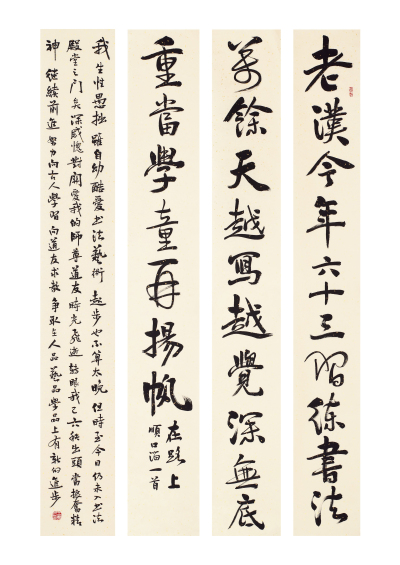 老漢今年六十三習練書法
萬餘天越寫越覺深無底
重當學童再揚帆
在路上
順口溜一首
我生性愚拙雖自幼酷愛书法藝術起步也不算太晚但時至今日仍未入书法
殿堂之门矣深感愧對關愛我的師尊道友時光飛逝轉眼我已六秩出頭當振奮精
神继续前進努力向古人學習向道友求教争取在人品藝品學品上有新的進步